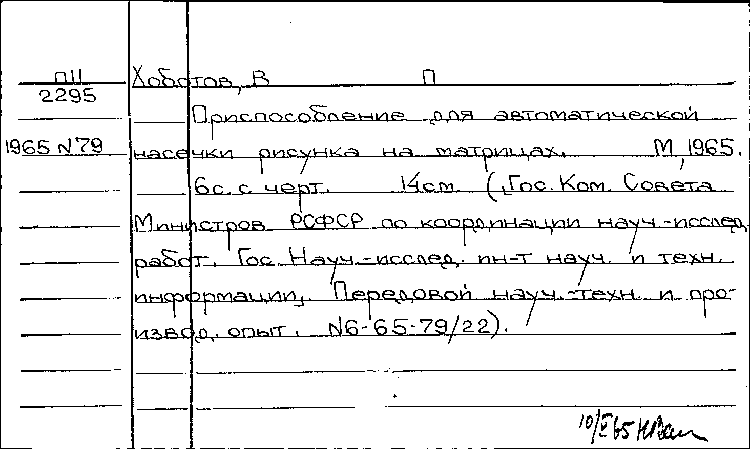 ПII Хоботов, В П
2295
Приспособление для автоматической
1965 N79 насечки рисунка на матрицах. М, 1965.
6с. с черт. 14см (Гос. Ком. Совета
Министров РСФСР по координации науч-исслед.
работ. Гос. Науч-исслед. ин-т науч. и техн.
информации, Передовой науч.-техн. и про-
извод. опыт. N6-65-79/22).
10/X 65